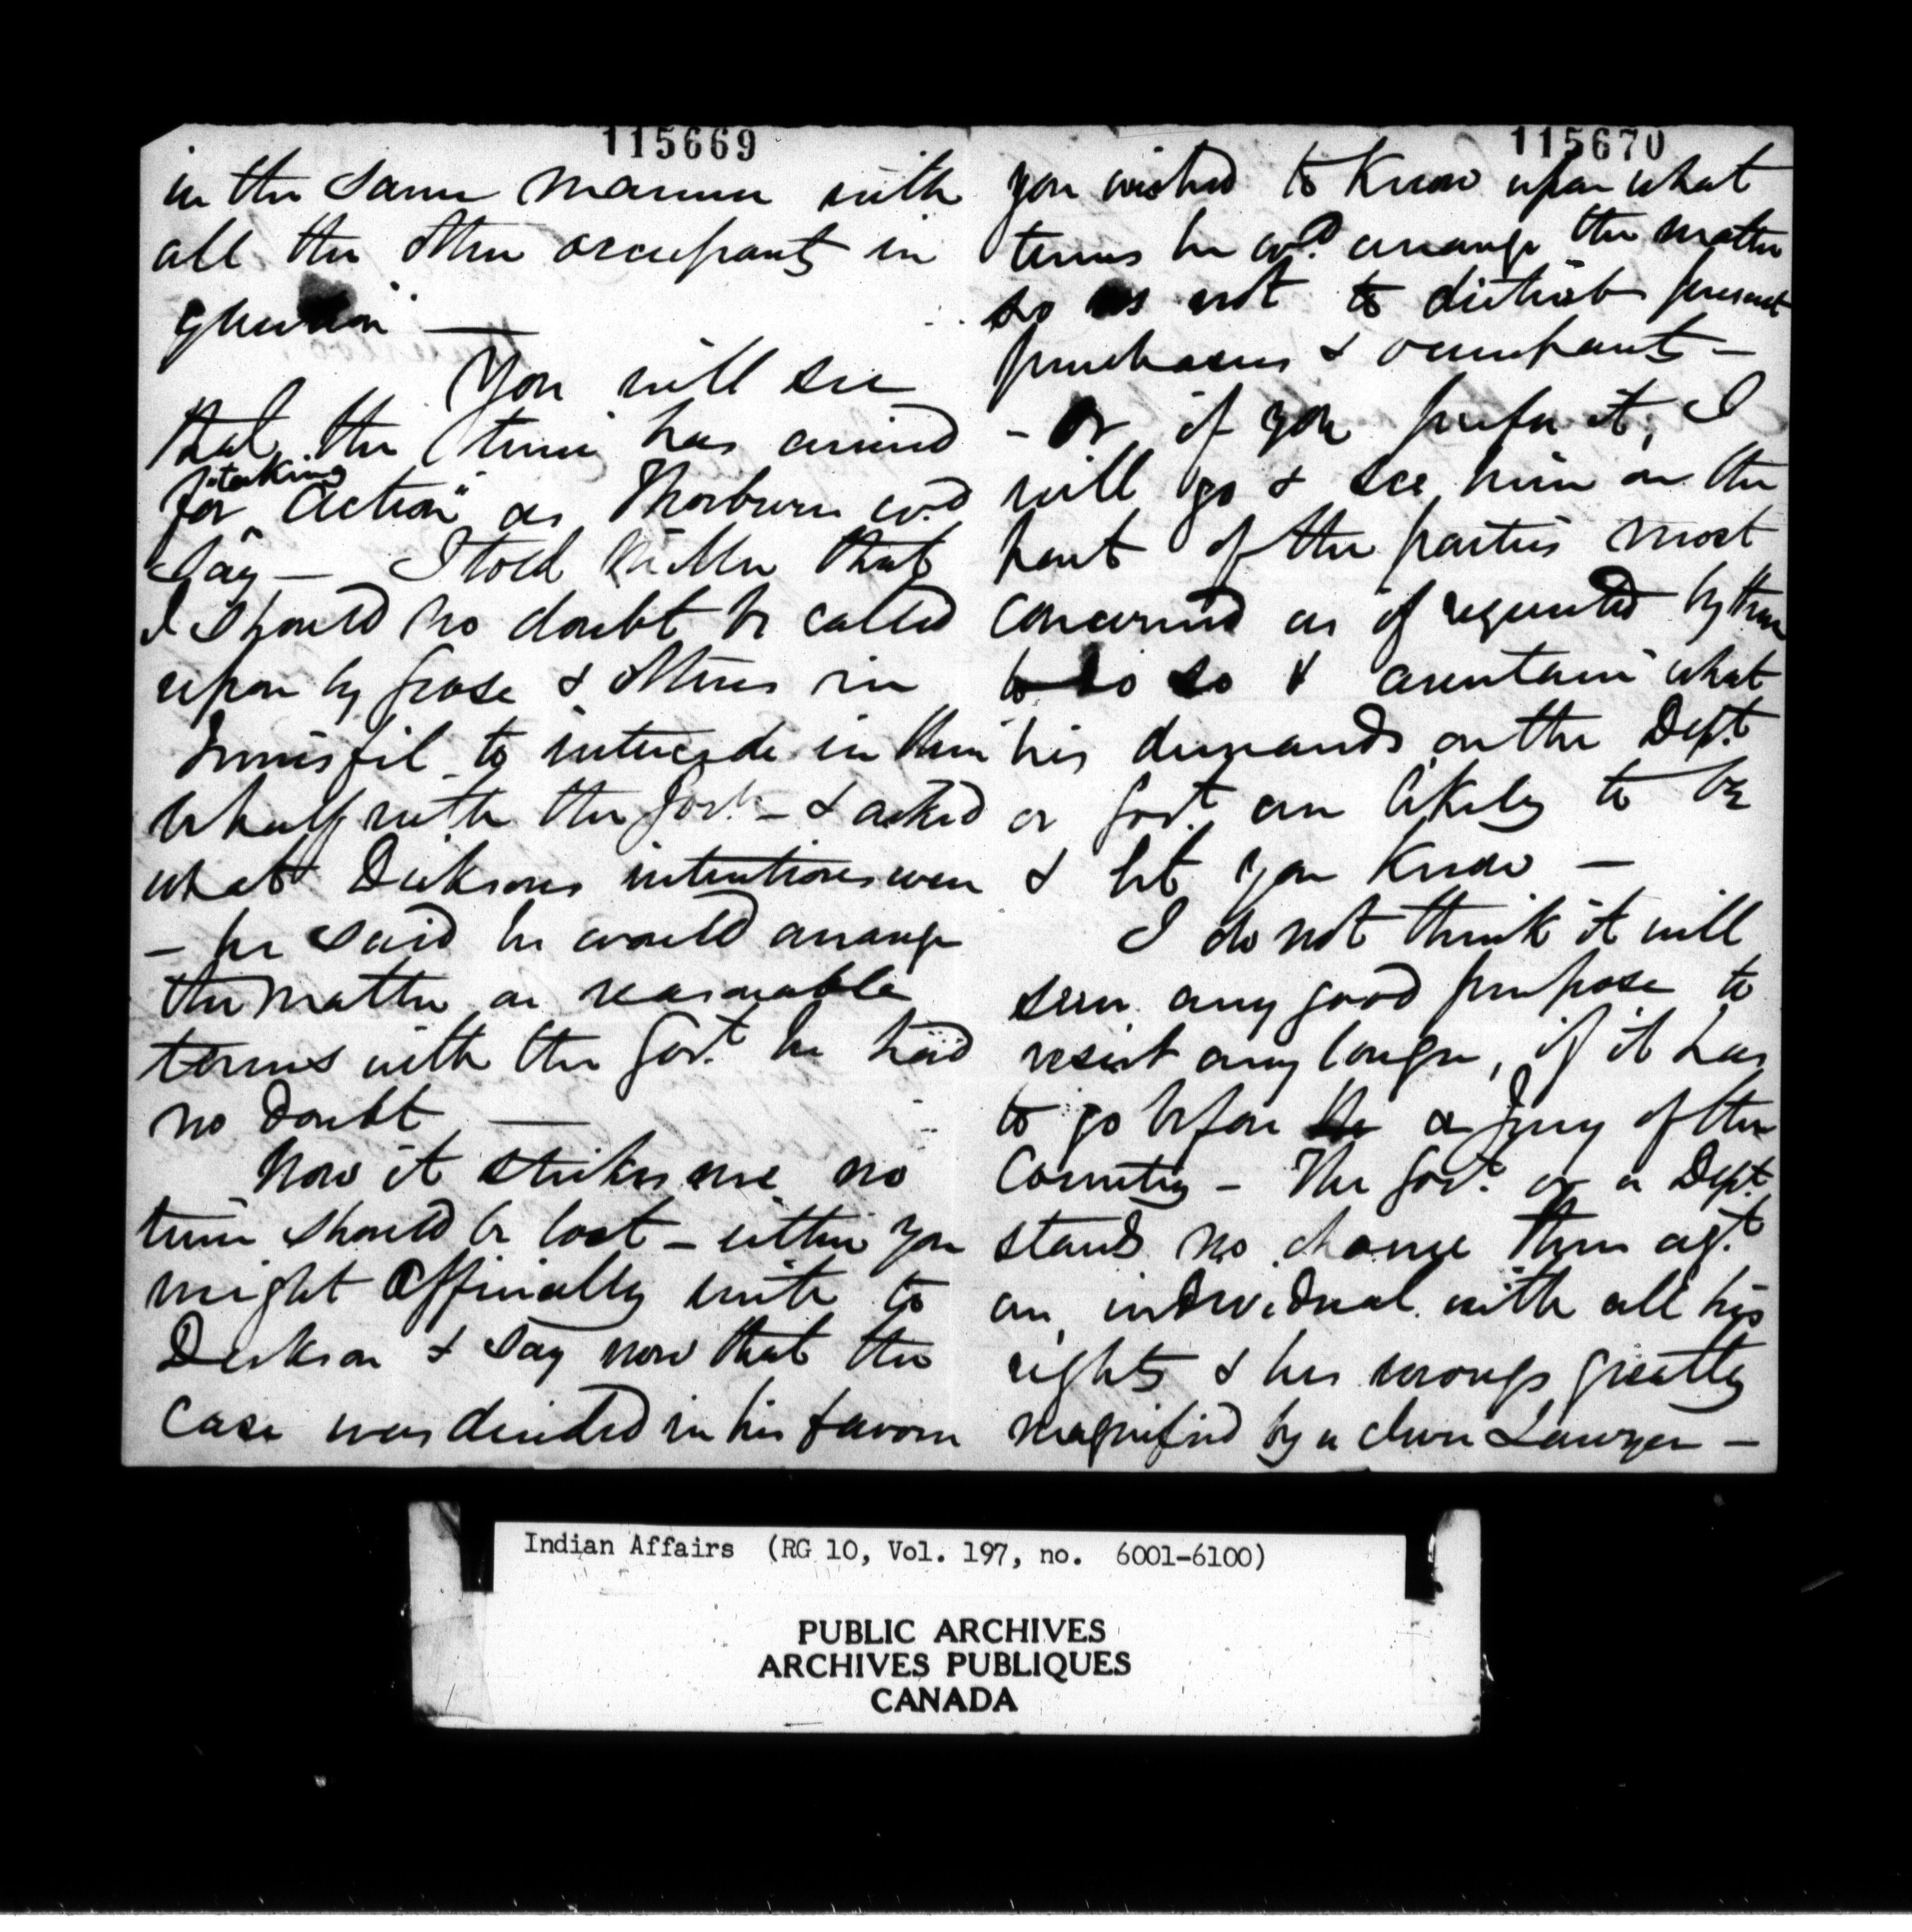 115669
in the same manner with
all the other occupants in
question —
You will see
that the time has arrived
for "taking action" as Thorburn wd
say — I told Miller that
I should no doubt be called
upon by Grose & others in
Innisfil to intercede in their
behalf with the Govt. — & asked
what Dicksons intentions were
— he said he would arrange
the matter on reasonable
terms with the Govt. he had
no doubt —
Now it strikes me no
time should be lost — either you
might officially write to
Dickson & say now that the
case was decided in his favour
115670
you wished to know upon what
terms he wd. arrange the matter
so as not to disturb present
purchasers & occupants —
- Or if you prefer it, I
will go & see him on the
part of the parties most
concerned as if requested by them
to do so & ascertain what
his demands on the Dept.
or Govt. are likely to be
& let you know —
I do not think it will
serve any good purpose to
resist any longer, if it has
to go before the a Jury of the
Country — The Govt. or a Dept.
stands no chance then agt.
an individual with all his
rights & his wrongs greatly
magnified by a clever Lawyer —
Indian Affairs (RG 10, Vol. 197, no. 6001-6100)
PUBLIC ARCHIVES
ARCHIVES PUBLIQUES
CANADA